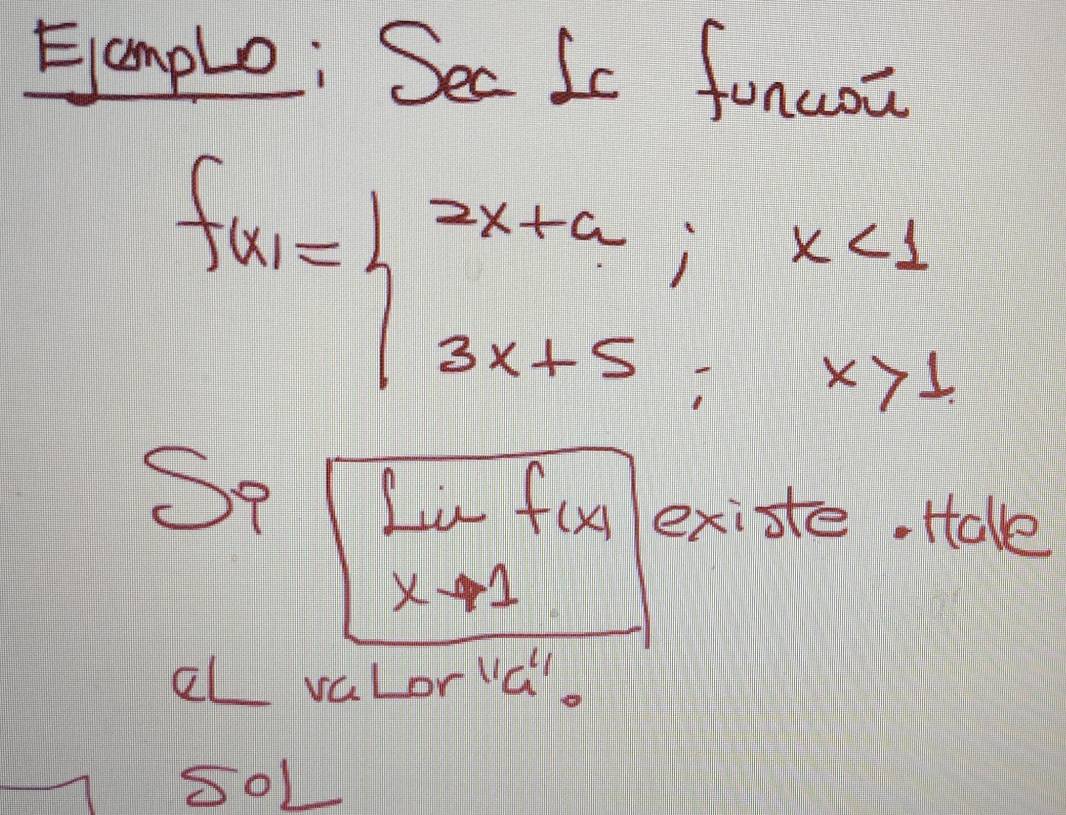 Ejemplo: Sea la función
f(x) = { 2x+a ; x<1
3x+5 ; x>1
Si Lim f(x) existe. Halle
x→1
el valor "a".
SOL